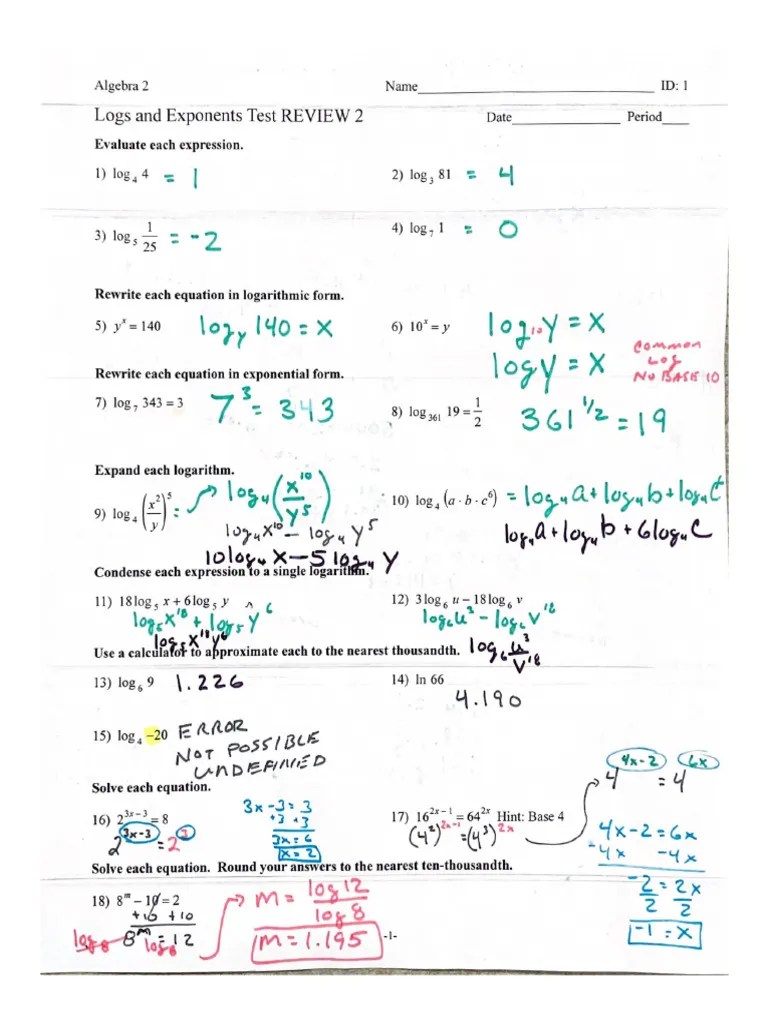 Algebra 2 Name ID: 1
Logs and Exponents Test REVIEW 2 Date Period
Evaluate each expression.
1) log₄ 4 = 1
2) log₃ 81 = 4
3) log₅ 1/25 = -2
4) log₇ 1 = 0
Rewrite each equation in logarithmic form.
5) yˣ = 140 log_y 140 = x
6) 10ˣ = y log₁₀ y = x
log y = x
COMMON
LOG
NO BASE 10
Rewrite each equation in exponential form.
7) log₇ 343 = 3 7³ = 343
8) log₃₆₁ 19 = 1/2 361^1/2 = 19
Expand each logarithm.
9) log₄ (x²/y)⁵ = log₄ (x¹⁰/y⁵)
log₄ x¹⁰ – log₄ y⁵
10 log₄ x – 5 log₄ y
10) log₄ (a · b · c⁶) = log₄ a + log₄ b + log₄ c⁶
log₄ a + log₄ b + 6 log₄ c
Condense each expression to a single logarithm.
11) 18 log₅ x + 6 log₅ y
log₅ x¹⁸ + log₅ y⁶
log₅ x¹⁸y⁶
12) 3 log₆ u – 18 log₆ v
log₆ u³ – log₆ v¹⁸
log₆ u³/v¹⁸
Use a calculator to approximate each to the nearest thousandth.
13) log₆ 9 1.226
14) ln 66
4.190
15) log₄ –20 ERROR
NOT POSSIBLE
UNDEFINED
Solve each equation.
16) 2^(3x – 3) = 8
2^(3x-3) = 2³
3x – 3 = 3
+3 +3
3x = 6
x = 2
17) 16^(2x – 1) = 64^(2x) Hint: Base 4
(4²)^(2x-1) = (4³)^(2x)
4^(4x-2) = 4^(6x)
4x – 2 = 6x
-4x -4x
-2 = 2x
2 2
-1 = x
Solve each equation. Round your answers to the nearest ten-thousandth.
18) 8ᵐ – 10 = 2
+10 +10
log₈ 8ᵐ = log₈ 12
m = log 12/log 8
m = 1.195
-1-